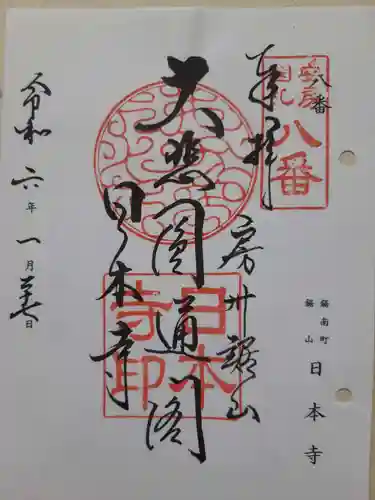 奉拝
八番
安房
国札
八番
房州鋸山
大悲圓通閣
日本寺
日本
寺印
令和六年一月二十七日
鋸南町
鋸山
日本寺